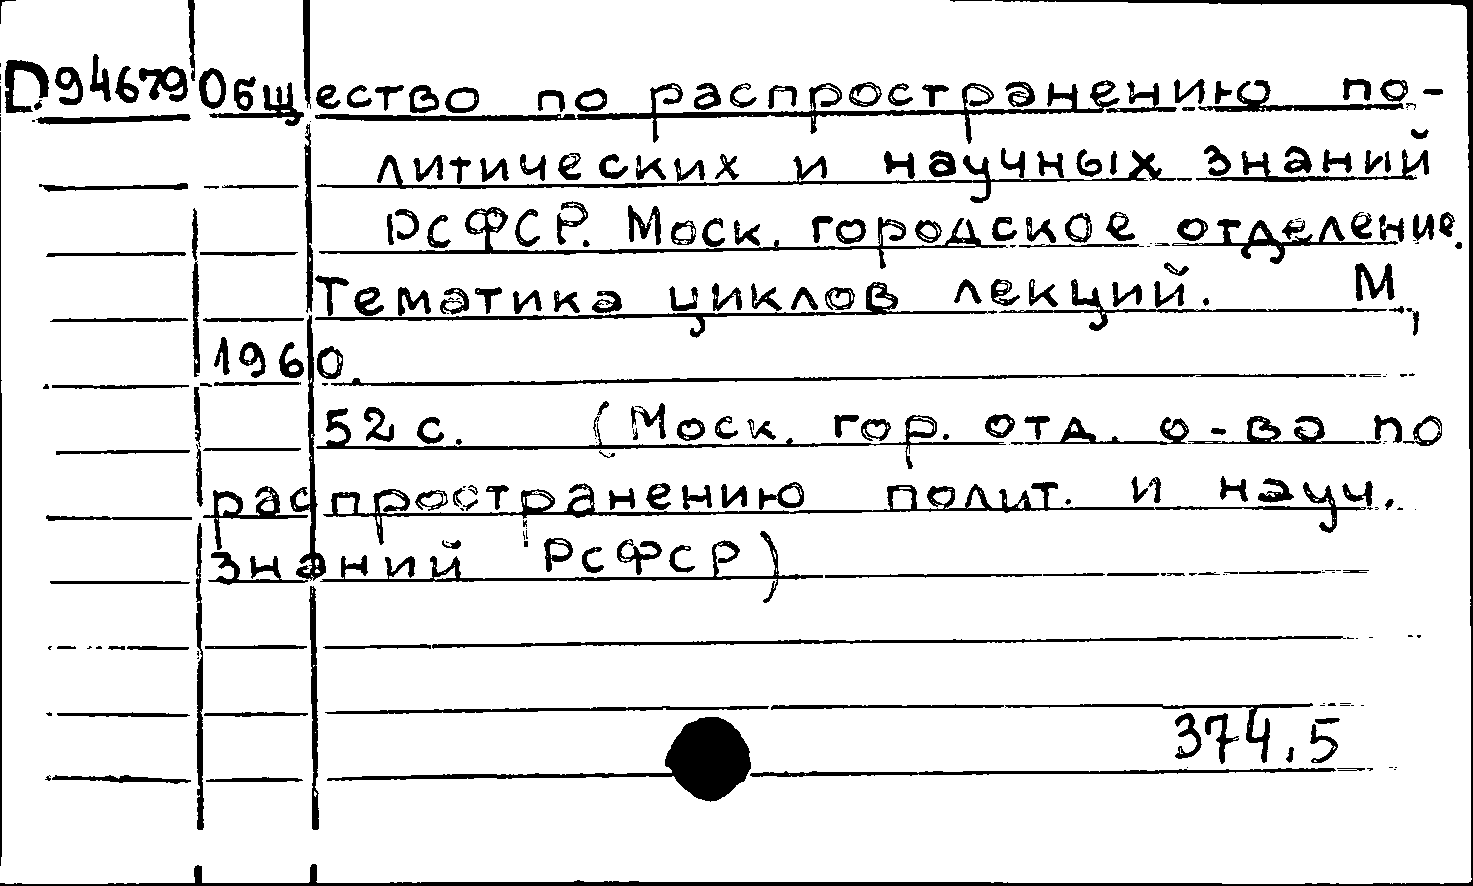 D94679 Общество по распространению по-
литических и научных знаний
РСФСР. Моск. городское отделение.
Тематика циклов лекций. М.,
1960.
52 с. (Моск. гор. отд. о-ва по
распространению полит. и науч.
знаний РСФСР)
374.5